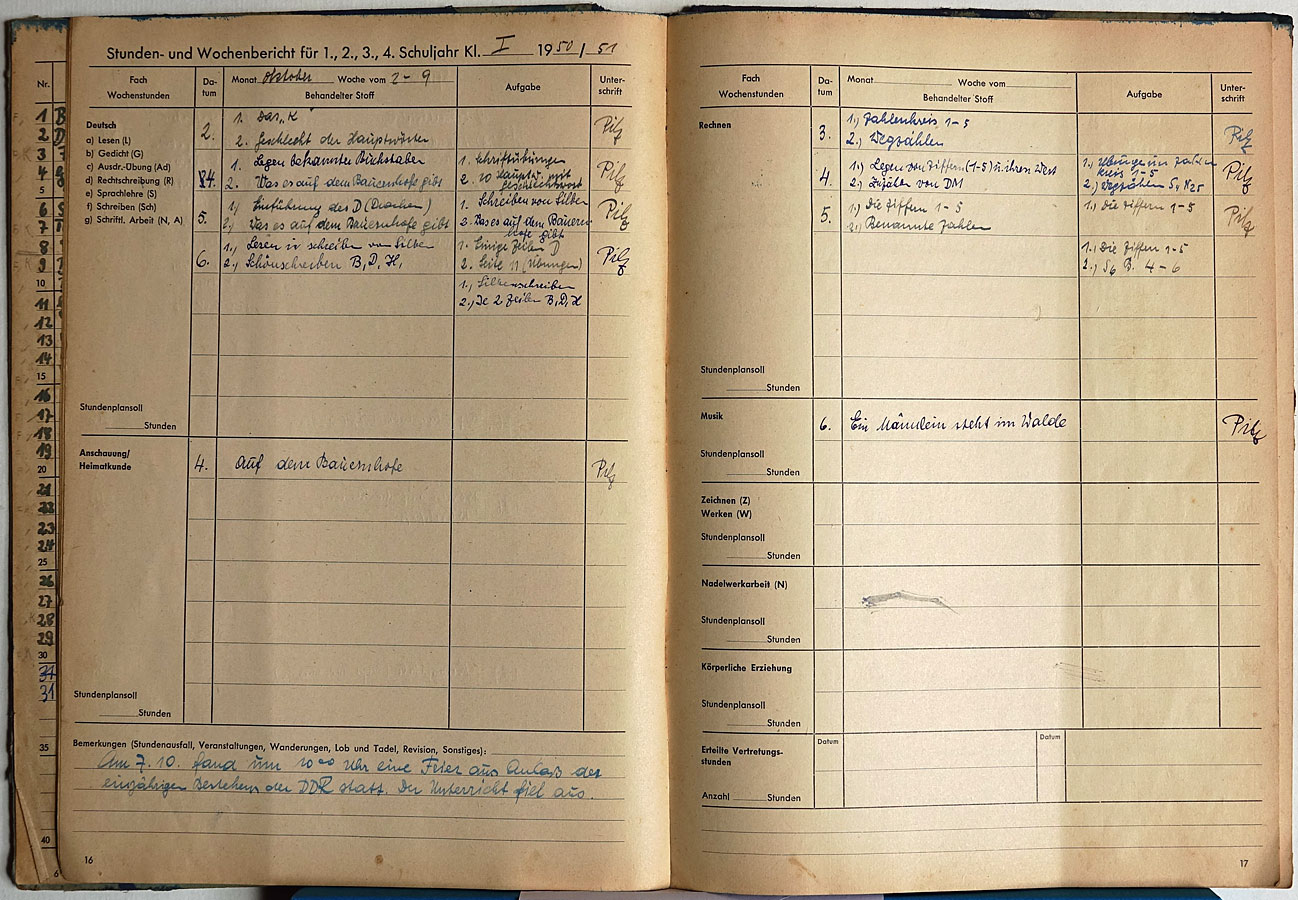 Stunden- und Wochenbericht für 1., 2., 3., 4. Schuljahr Kl. I 1950/51
Nr.
Fach
Wochenstunden
Da-
tum
Monat Oktober Woche vom 2-9
Behandelter Stoff
Aufgabe
Unter-
schrift
Deutsch
a) Lesen (L)
b) Gedicht (G)
c) Ausdr.-Übung (Ad)
d) Rechtschreibung (R)
e) Sprachlehre (S)
f) Schreiben (Sch)
g) Schriftl. Arbeit (N, A)
2.
1. Das „K
2. Geschlecht der Hauptwörter
Pilz
4.
1. Legen bekannter Buchstaben
2. Was es auf dem Bauernhofe gibt
1. Schriftübungen
2. 10 Hauptw. mit
Geschlechtswort
Pilz
5.
1.) Einführung des D (Drachen)
2.) Was es auf dem Bauernhofe gibt
1. Schreiben von Silben
2. Was es auf dem Bauern
hofe gibt
Pilz
6.
1.) Lesen u. schreiben von Silben
2.) Schönschreiben B, D, H,
1. Einige Zeilen D
2. Seite 11 (Übungen)
Pilz
1.) Silbenschreiben
2.) Je 2 Zeilen B, D, H
Stundenplansoll
Stunden
Anschauung/
Heimatkunde
4.
Auf dem Bauernhofe
Pilz
Stundenplansoll
Stunden
Bemerkungen (Stundenausfall, Veranstaltungen, Wanderungen, Lob und Tadel, Revision, Sonstiges):
Am 7.10. fand um 10°° Uhr eine Feier aus Anlaß des
einjährigen Bestehens der DDR statt. Der Unterricht fiel aus.
16
1
2
3
4
5
6
7
8
9
10
11
12
13
14
15
16
17
18
19
20
21
22
23
24
25
26
27
28
29
30
31
31
35
40
6
Fach
Wochenstunden
Da-
tum
Monat Woche vom
Behandelter Stoff
Aufgabe
Unter-
schrift
Rechnen
3.
1.) Zahlenkreis 1-5
2.) Wegzählen
Pilz
4.
1.) Legen von Ziffern (1-5) u. ihren Wert
2.) Zuzählen von DM
1.) Übungen im Zahlen
kreis 1-5
2.) Wegzählen S. 4 N25
Pilz
5.
1.) Die Ziffern 1-5
2.) Benannte Zahlen
1.) Die Ziffern 1-5
Pilz
1.) Die Ziffern 1-5
2.) S6 B. 4-6
Stundenplansoll
Stunden
Musik
6.
Ein Männlein steht im Walde
Pilz
Stundenplansoll
Stunden
Zeichnen (Z)
Werken (W)
Stundenplansoll
Stunden
Nadelwerkarbeit (N)
Stundenplansoll
Stunden
Körperliche Erziehung
Stundenplansoll
Stunden
Erteilte Vertretungs-
stunden
Datum
Datum
Anzahl Stunden
17